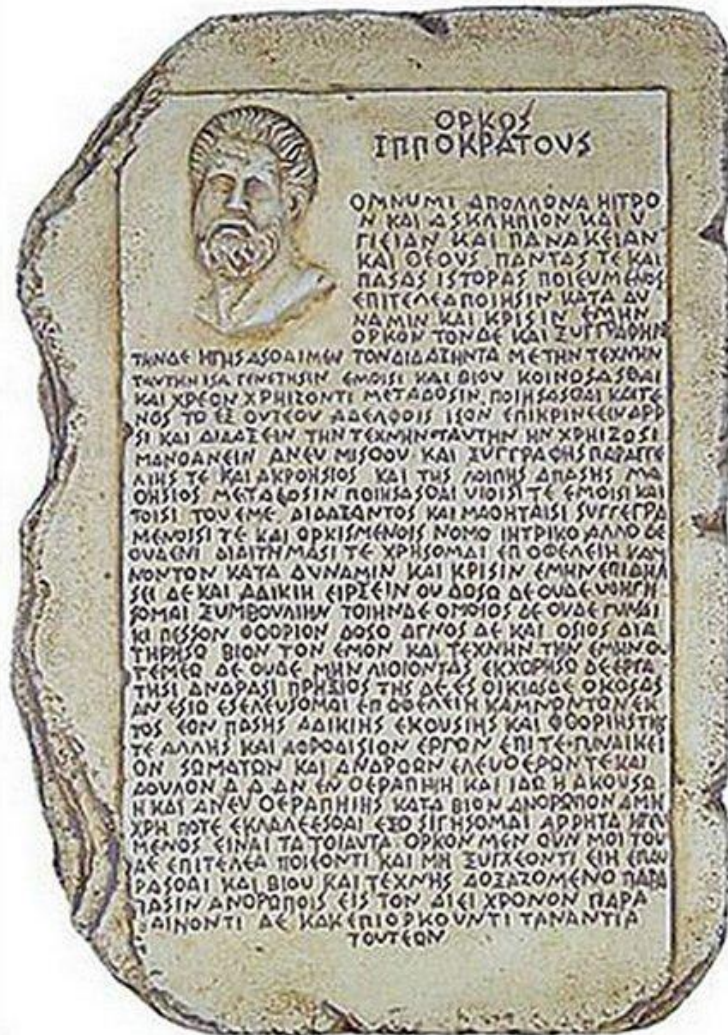 ΟΡΚΟΣ
ΙΠΠΟΚΡΑΤΟΥΣ
ΟΜΝΥΜΙ ΑΠΟΛΛΩΝΑ ΗΙΤΡΟ
Ν ΚΑΙ ΑΣΚΛΗΠΙΟΝ ΚΑΙ Υ
ΓΙΕΙΑΝ ΚΑΙ ΠΑΝΑΚΕΙΑΝ
ΚΑΙ ΘΕΟΥΣ ΠΑΝΤΑΣ ΤΕ ΚΑΙ
ΠΑΣΑΣ ΙΣΤΟΡΑΣ ΠΟΙΕΥΜΕΝΟΣ
ΕΠΙΤΕΛΕΑ ΠΟΙΗΣΙΝ ΚΑΤΑ ΔΥ
ΝΑΜΙΝ ΚΑΙ ΚΡΙΣΙΝ ΕΜΗΝ
ΟΡΚΟΝ ΤΟΝΔΕ ΚΑΙ ΞΥΓΓΡΑΦΗΝ
ΤΗΝΔΕ ΗΓΗΣΑΣΘΑΙ ΜΕΝ ΤΟΝ ΔΙΔΑΞΗΝΤΑ ΜΕ ΤΗΝ ΤΕΧΝΗΝ
ΤΑΥΤΗΝ ΙΣΑ ΓΕΝΕΤΗΣΙΝ ΕΜΟΙΣΙ ΚΑΙ ΒΙΟΥ ΚΟΙΝΟΣΑΣΘΑΙ
ΚΑΙ ΧΡΕΟΝ ΧΡΗΙΖΟΝΤΙ ΜΕΤΑΔΟΣΙΝ ΠΟΙΗΣΑΣΘΑΙ ΚΑΙ ΓΕ
ΝΟΣ ΤΟ ΕΞ ΟΥΤΕΟΥ ΑΔΕΛΦΟΙΣ ΙΣΟΝ ΕΠΙΚΡΙΝΕΕΙΝ ΑΡΡ
ΣΙ ΚΑΙ ΔΙΔΑΞΕΙΝ ΤΗΝ ΤΕΧΝΗΝ ΤΑΥΤΗΝ ΗΝ ΧΡΗΙΖΟΣΙ
ΜΑΝΘΑΝΕΙΝ ΑΝΕΥ ΜΙΣΘΟΥ ΚΑΙ ΞΥΓΓΡΑΦΗΣ ΠΑΡΑΓΓΕ
ΛΙΗΣ ΤΕ ΚΑΙ ΑΚΡΟΗΣΙΟΣ ΚΑΙ ΤΗΣ ΛΟΙΠΗΣ ΑΠΑΣΗΣ ΜΑ
ΘΗΣΙΟΣ ΜΕΤΑΔΟΣΙΝ ΠΟΙΗΣΑΣΘΑΙ ΥΙΟΙΣΙ ΤΕ ΕΜΟΙΣΙ ΚΑΙ
ΤΟΙΣΙ ΤΟΥ ΕΜΕ ΔΙΔΑΞΑΝΤΟΣ ΚΑΙ ΜΑΘΗΤΑΙΣΙ ΣΥΓΓΕΓΡΑ
ΜΕΝΟΙΣΙ ΤΕ ΚΑΙ ΩΡΚΙΣΜΕΝΟΙΣ ΝΟΜΩ ΙΗΤΡΙΚΟ ΑΛΛΟ ΔΕ
ΟΥΔΕΝΙ ΔΙΑΙΤΗΜΑΣΙ ΤΕ ΧΡΗΣΟΜΑΙ ΕΠ ΟΦΕΛΕΙΗ ΚΑΜ
ΝΟΝΤΟΝ ΚΑΤΑ ΔΥΝΑΜΙΝ ΚΑΙ ΚΡΙΣΙΝ ΕΜΗΝ ΕΠΙ ΔΗΛ
ΣΕΙ ΔΕ ΚΑΙ ΑΔΙΚΙΗ ΕΙΡΞΕΙΝ ΟΥ ΔΟΣΩ ΔΕ ΟΥΔΕ ΥΦΗΓΗ
ΣΟΜΑΙ ΞΥΜΒΟΥΛΙΗΝ ΤΟΙΗΝΔΕ ΟΜΟΙΟΣ ΔΕ ΟΥΔΕ ΓΥΝΑΙ
ΚΙ ΠΕΣΣΟΝ ΦΘΟΡΙΟΝ ΔΟΣΟ ΑΓΝΟΣ ΔΕ ΚΑΙ ΟΣΙΟΣ ΔΙΑ
ΤΗΡΗΣΩ ΒΙΟΝ ΤΟΝ ΕΜΟΝ ΚΑΙ ΤΕΧΝΗΝ ΤΗΝ ΕΜΗΝ ΟΥ
ΤΕΜΕΩ ΔΕ ΟΥΔΕ ΜΗΝ ΛΙΘΙΟΝΤΑΣ ΕΚΧΟΡΗΣΩ ΔΕ ΕΡΓΑ
ΤΗΣΙ ΑΝΔΡΑΣΙ ΠΡΗΞΙΟΣ ΤΗΣ ΔΕ ΕΣ ΟΙΚΙΑΣ ΔΕ ΟΚΟΣΑΣ
ΑΝ ΕΣΙΩ ΕΣΕΛΕΥΣΟΜΑΙ ΕΠ ΩΦΕΛΕΙΗ ΚΑΜΝΟΝΤΟΝ ΕΚ
ΤΟΣ ΕΟΝ ΠΑΣΗΣ ΑΔΙΚΙΗΣ ΕΚΟΥΣΙΗΣ ΚΑΙ ΦΘΟΡΙΗΣ ΤΗΣ
ΤΕ ΑΛΛΗΣ ΚΑΙ ΑΦΡΟΔΙΣΙΟΝ ΕΡΓΩΝ ΕΠΙ ΤΕ ΓΥΝΑΙΚΕΙ
ΟΝ ΣΩΜΑΤΩΝ ΚΑΙ ΑΝΔΡΩΩΝ ΕΛΕΥΘΕΡΩΝ ΤΕ ΚΑΙ
ΔΟΥΛΟΝ Α Δ ΑΝ ΕΝ ΘΕΡΑΠΗΙΗ ΚΑΙ ΙΔΩ Η ΑΚΟΥΣΩ
Η ΚΑΙ ΑΝΕΥ ΘΕΡΑΠΗΙΗΣ ΚΑΤΑ ΒΙΟΝ ΑΝΘΡΩΠΟΝ Α ΜΗ
ΧΡΗ ΠΟΤΕ ΕΚΛΑΛΕΕΣΘΑΙ ΕΞΟ ΣΙΓΗΣΟΜΑΙ ΑΡΡΗΤΑ ΗΓΕΥ
ΜΕΝΟΣ ΕΙΝΑΙ ΤΑ ΤΟΙΑΥΤΑ ΟΡΚΟΝ ΜΕΝ ΟΥΝ ΜΟΙ ΤΟΥ
ΔΕ ΕΠΙΤΕΛΕΑ ΠΟΙΕΟΝΤΙ ΚΑΙ ΜΗ ΞΥΓΧΕΟΝΤΙ ΕΙΗ ΕΠΑΥ
ΡΑΣΘΑΙ ΚΑΙ ΒΙΟΥ ΚΑΙ ΤΕΧΝΗΣ ΔΟΞΑΖΟΜΕΝΟ ΠΑΡΑ
ΠΑΣΙΝ ΑΝΘΡΩΠΟΙΣ ΕΙΣ ΤΟΝ ΑΙΕΙ ΧΡΟΝΟΝ ΠΑΡΑ
ΒΑΙΝΟΝΤΙ ΔΕ ΚΑΚ ΕΠΙΟΡΚΟΥΝΤΙ ΤΑΝΑΝΤΙΑ
ΤΟΥΤΕΩΝ